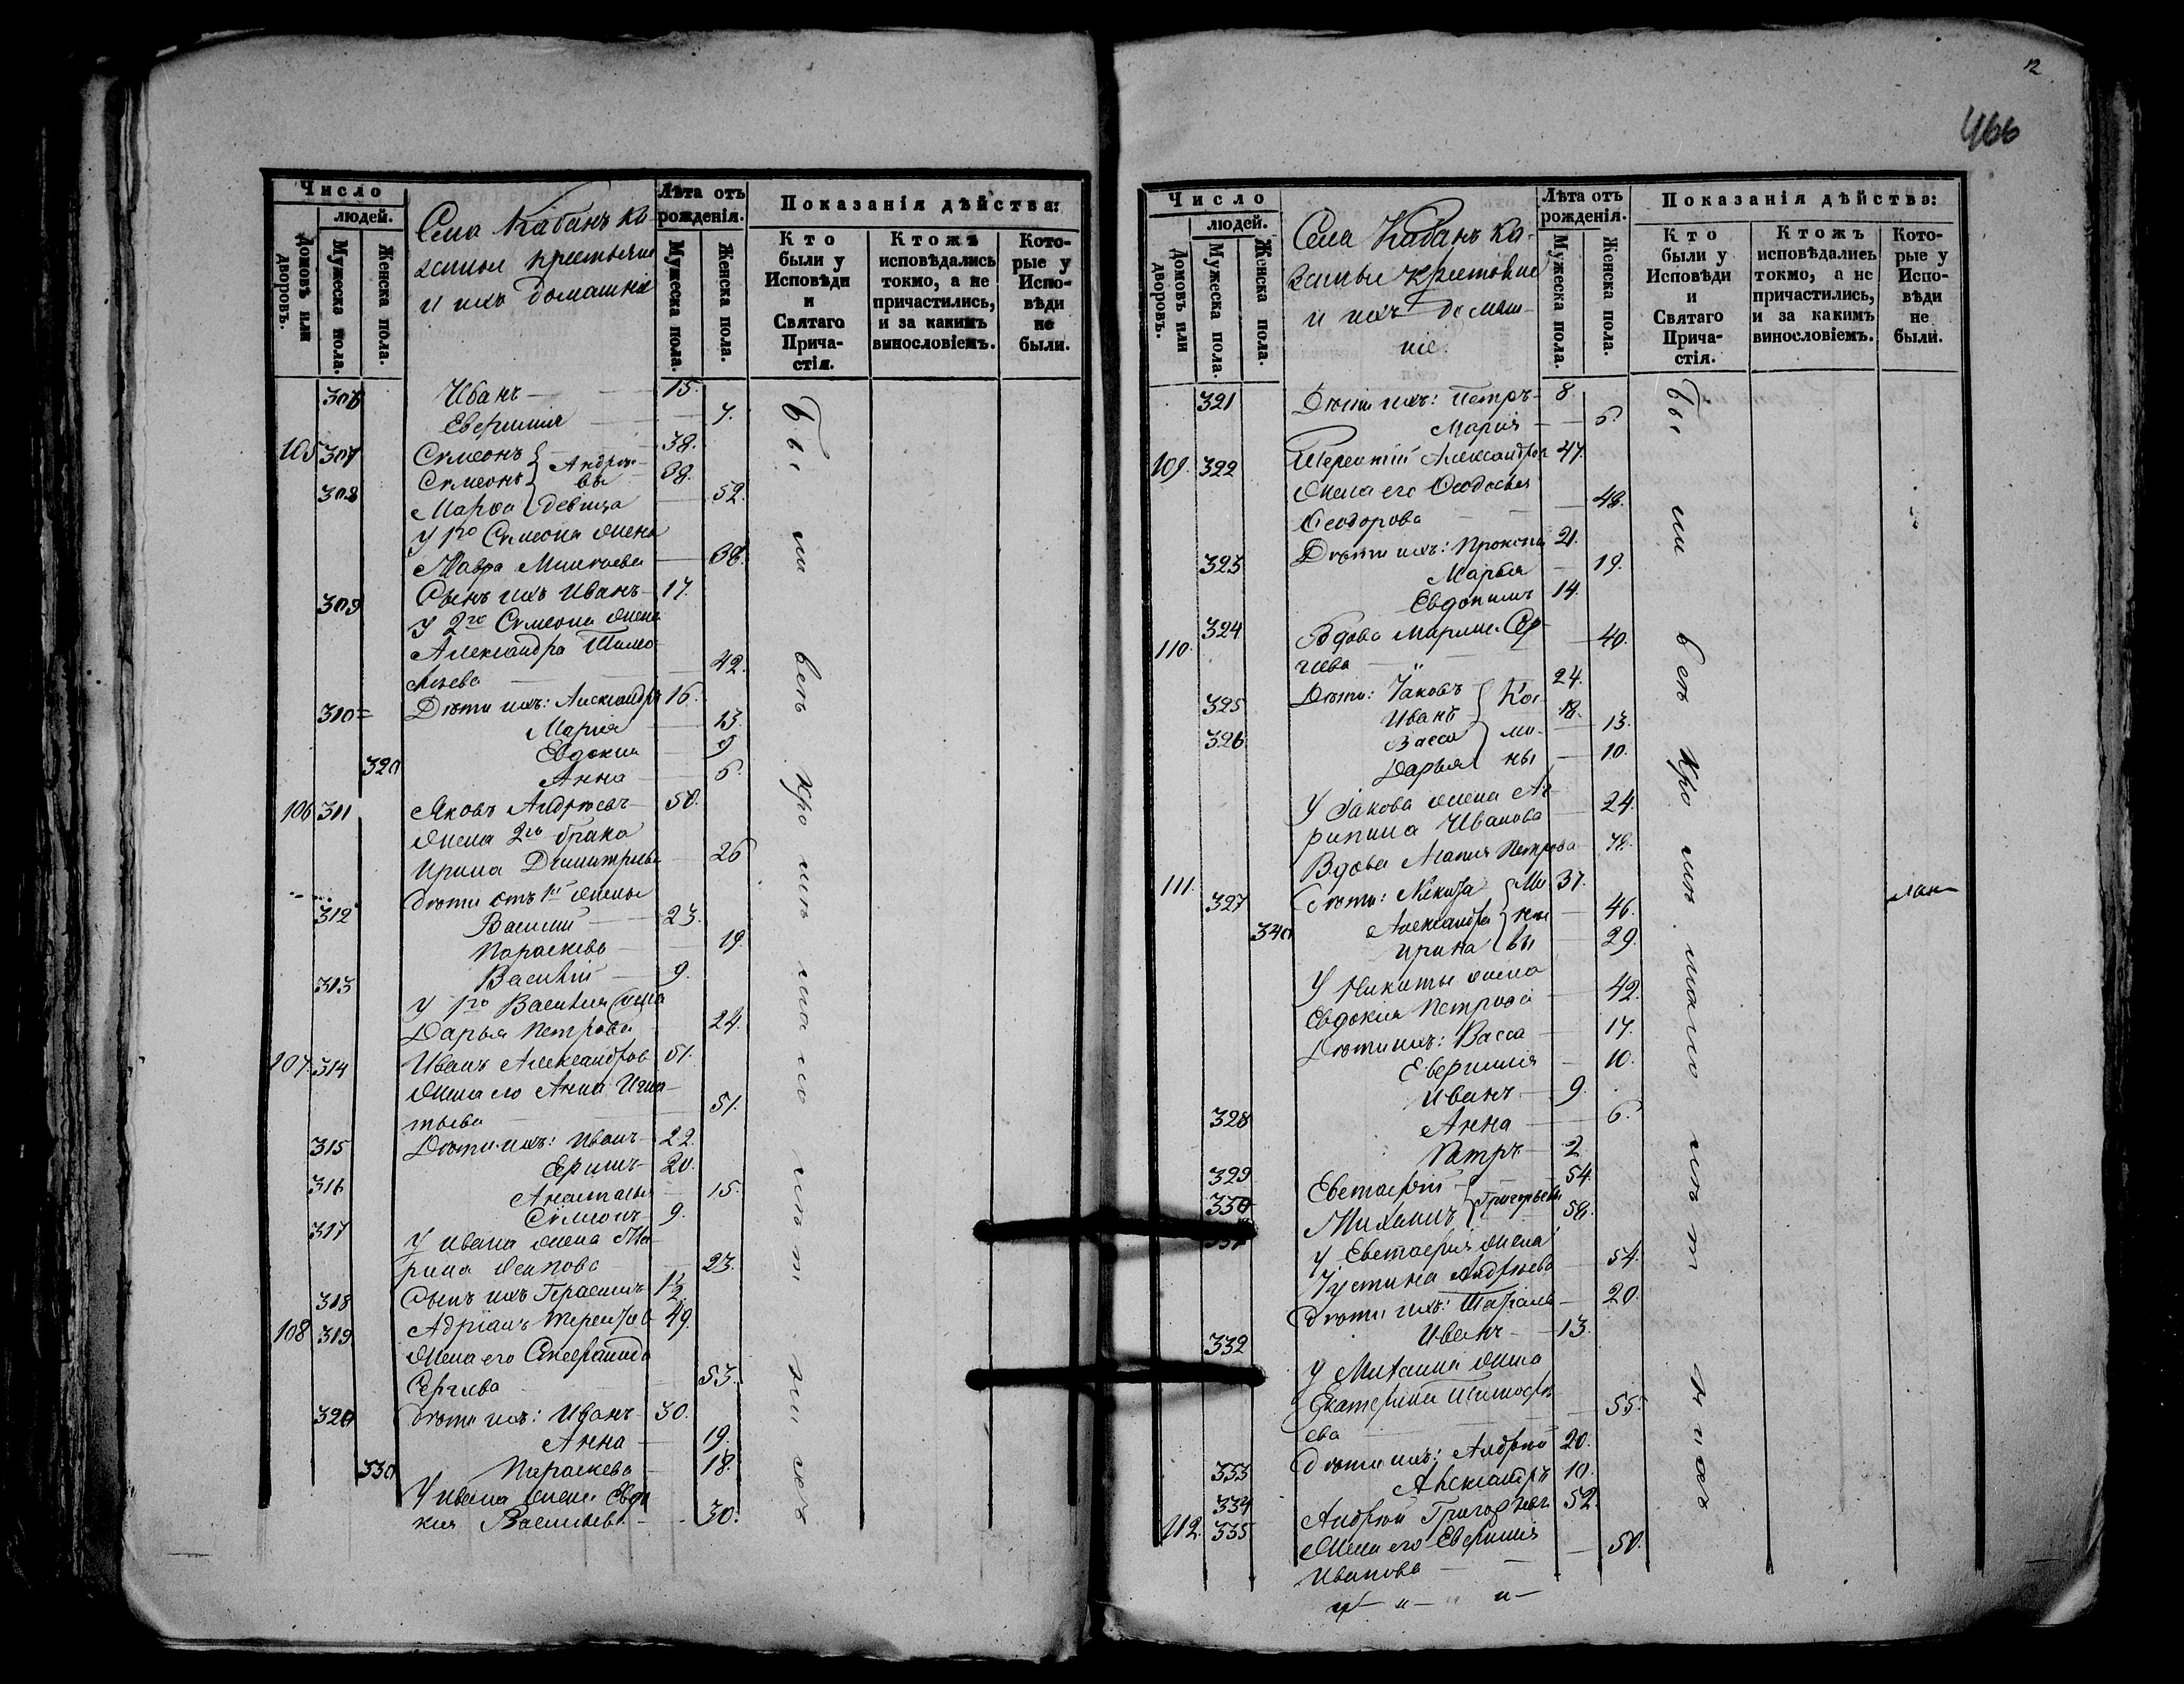 12
466
Число
людей.
Домовъ или дворовъ.
Мужеска пола.
Женска пола.
Села Кабанъ ка-
зенные крестьяне
и ихъ домашніе
Лѣта отъ
рожденія.
Мужеска пола.
Женска пола.
Показанія дѣйства:
Кто
были у
Исповѣди
и
Святаго
Прича-
стія.
Ктожъ
исповѣдались
токмо, а не
причастились,
и за какимъ
винословіемъ.
Кото-
рые у
Испо-
вѣди
не
были.
306 Иванъ 15.
Евфимия 7.
105 307 Симеонъ Андрее- 38.
308 Симеонъ вы 38.
Марфа девица 52.
У 1го Симеона жена
Мавра 38.
309 Сынъ ихъ Иванъ 17.
У 2го Симеона жена
Александра Тимо-
42.
310 Дѣти ихъ: Александръ 16.
Мария 13.
Евдокия 9
320 Анна 6.
106 311 Яковъ Андреевъ 50.
Жена 2го брака
Ирина Димитриева 26
Дѣти отъ 1й жены
312 Василий 23.
Параскева 19
313 Василий 9.
У 1го Василия жена
Дарья Петрова 24.
107. 314 Иванъ Александров 51.
Жена его Анна Игна-
тьева 51.
315 Дѣти ихъ: Иванъ 22.
316 Ефимъ 20.
Анастасья 15.
317 Симеонъ 9.
У Ивана жена Ма-
рина Осипова 23.
318 Сынъ ихъ Герасимъ 1/2
108 319 Адріанъ Терентьев 49.
Жена его
Сергиева 53.
320 Дѣти ихъ: Иванъ 30.
Анна 19.
330 Параскева 18.
У Ивана жена Евдо
кия Васильева 30.
Были вси кроме малолетнихъ
Число
людей.
Домовъ или дворовъ.
Мужеска пола.
Женска пола.
Села Кабанъ ка-
зенные крестьяне
и ихъ домаш-
ніе.
Лѣта отъ
рожденія.
Мужеска пола.
Женска пола.
Показанія дѣйства:
Кто
были у
Исповѣди
и
Святаго
Прича-
стія.
Ктожъ
исповѣдались
токмо, а не
причастились,
и за какимъ
винословіемъ.
Кото-
рые у
Испо-
вѣди
не
были.
321 Дѣти ихъ: Петръ 8.
Мария 6.
109. 322 Терентій Александров 47.
Жена его Феодосья
Феодорова 48.
323 Дѣти ихъ: 21.
Марья 19.
324 Евдокимъ 14.
110. Вдова Марина Сер-
гиева 40.
325 Дѣти: Іаковъ Кос- 24.
326 Иванъ 18.
Васса ми- 13.
Дарья ны 10.
У Іакова жена Аг-
рипина Иванова 24.
Вдова Агапия Петрова 78.
111. 327 Дѣти: Никита Ми 37.
340 Александра 46.
Ирина вы 29.
У Никиты жена
Евдокия Петрова 42.
Дѣти ихъ: Васса 17.
Евфимия 10.
328 Иванъ 9.
Анна 6.
329 Петръ 2
330 Евстафій Григорьевы 54.
331 Михаилъ 58.
У Евстафия жена
Іустина Андреева 54.
Дѣти ихъ: 20.
332 Иванъ 13.
У Михаила жена
Екатерина Тимофе
ева 55.
333 Дѣти ихъ: Андрей 20.
334 Александръ 10.
112. 335 Андрей Григорьев 52.
Жена его Евфимия
Иванова 50.
Были вси кроме малолетнихъ